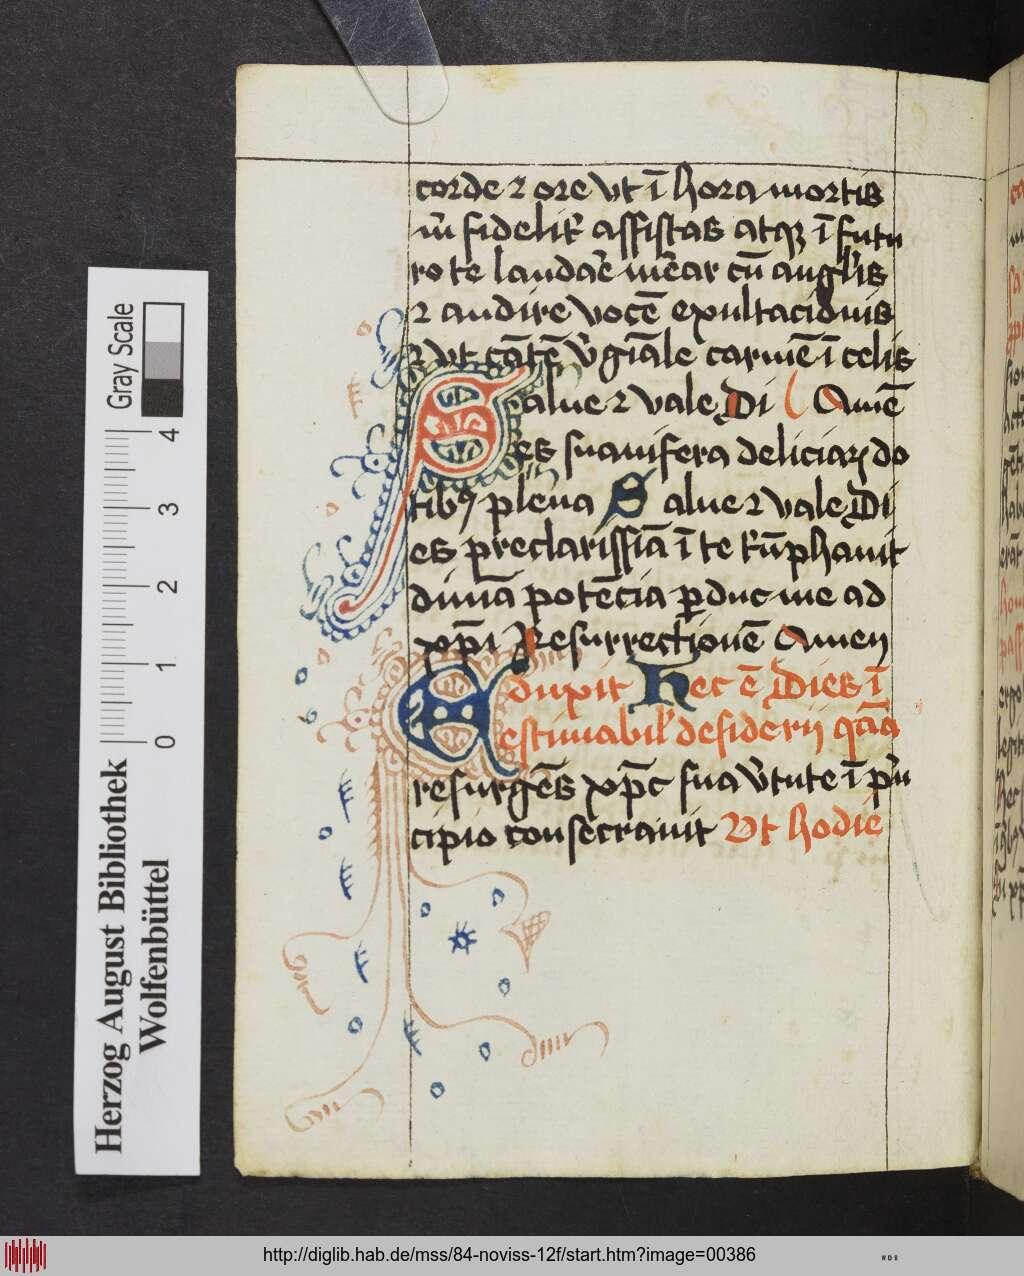 corde ⁊ ore vt ī hora mortis
m̄ fidelit͛ assistas atqꝫ ī futu
ro te laudar̄e mēar cū angl̓is
⁊ audire vocē exultacıōuis
⁊ vt cātē v̓giāle carmē ī celis
Salue ⁊ vale Di Amē
es suauifera deliciaꝝ do
tibꝰ plena Salue ⁊ vale Di
es preclarissīa ī te t͛ūphauit
diuīa potēcia ꝑduc me ad
xp̄i Resurrectionē Amen
Hec ē Dies ī
estimabil̓ desiderij q̄
resurgēs xp̄c sua v̓tute ī p͛n
cipio consecrauit Vt hodie
Gray Scale
4
3
2
1
0
Herzog August Bibliothek
Wolfenbüttel
http://diglib.hab.de/mss/84-noviss-12f/start.htm?image=00386